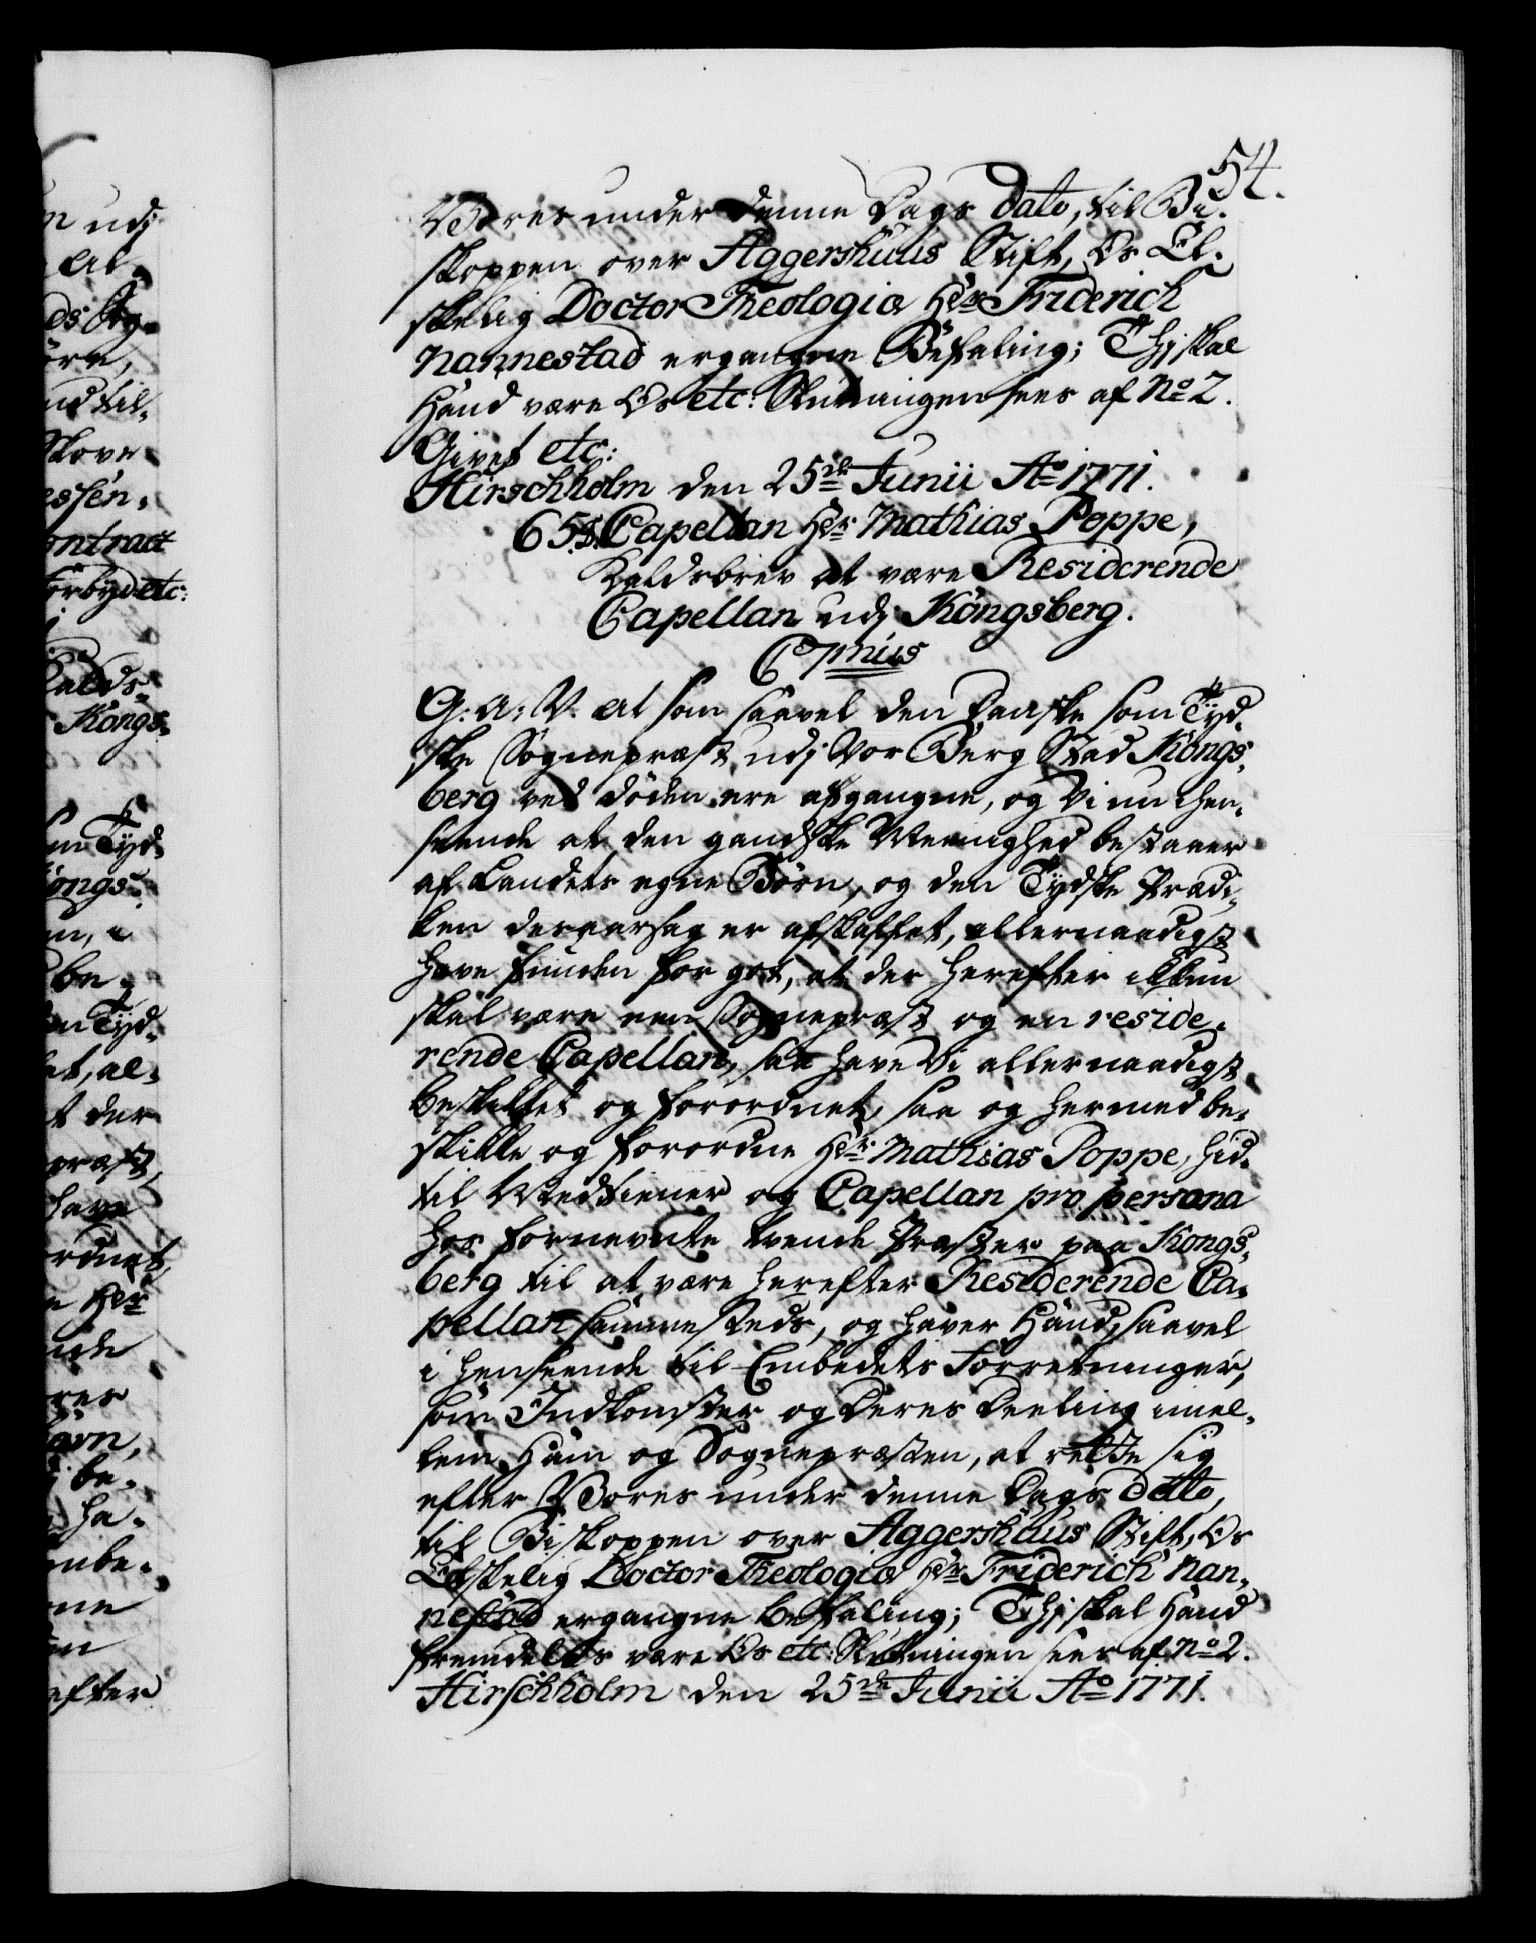 54.
Vores under denne Dags Dato, til Bi-
skoppen over Aggershuus Stift, Os El-
skelig Doctor Theologiæ Hr. Friderich
Nannestad ergangne Befaling; Thj skal
Hand være Os etc: Slutningen sees af No 2.
Givet etc:
Hirschholm den 25de Junii Ao 1771.
65. Capellan Hr Mathias Poppe,
Kaldsbrev at være Residerende
Capellan udj Kongsberg.
C 7mus
G: A: V. at som saavel den Danske som Tyd-
ske Sognepræst udj Vor Berg Stad Kongs-
berg ved Döden ere afgangne, og Vi nu hen-
seende at den gandske Meenighed bestaaer
af Landets egne Börn, og den Tydske Prædi-
ken deraarsag er afskaffet, allernaadigst
have funden for got, at der herefter ikkun
skal være een Sognepræst og en reside-
rende Capellan, saa have Vi allernaadigst
beskikket og forordnet, saa og hermed be-
skikke og forordne Hr. Mathias Poppe, hid-
til Medtiener og Capellan pro persona
hos fornevnte tvende Præster paa Kongs-
berg til at være herefter Residerende Ca-
pellan sammesteds, og haver Hand, saavel
i henseende til Embedets Forretninger,
som Indkomster og deres Deeling imel-
lem Ham og Sognepræsten, at rette sig
efter Vores under denne Dags Dato,
til Biskoppen over Aggershuus Stift, Os
Elskelig Doctor Theologiæ Hr. Friderich Nan-
nestad ergangne Befaling; Thj skal Hand
fremdeles være Os etc: Slutningen sees af No 2.
Hirschholm den 25de Junii Ao 1771.